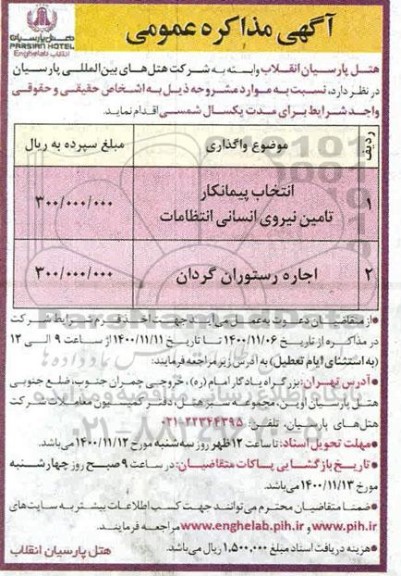 هتل پارسیان
PARSIAN HOTEL
Enghelab انقلاب
آگهی مذاکره عمومی
هتل پارسیان انقلاب وابسته به شرکت هتل های بین المللی پارسیان
در نظر دارد، نسبت به موارد مشروحه ذیل به اشخاص حقیقی و حقوقی
واجد شرایط برای مدت یکسال شمسی اقدام نماید.
ردیف موضوع واگذاری مبلغ سپرده به ریال
۱ انتخاب پیمانکار تامین نیروی انسانی انتظامات ۳۰۰/۰۰۰/۰۰۰
۲ اجاره رستوران گردان ۳۰۰/۰۰۰/۰۰۰
•از متقاضیان دعوت به عمل می آید جهت اخذ فرم شرایط شرکت
در مذاکره از تاریخ ۱۴۰۰/۱۱/۰۶ تا تاریخ ۱۴۰۰/۱۱/۱۱ از ساعت ۹ الی ۱۳
(به استثنای ایام تعطیل) به آدرس زیر مراجعه فرمایند.
•آدرس تهران: بزرگراه یادگار امام (ره)، خروجی چمران جنوب، ضلع جنوبی
هتل پارسیان اوین، مجموعه سبز هتل، دفتر کمیسیون معاملات شرکت
هتل های پارسیان، تلفن: ۲۲۳۴۴۳۹۵-۰۲۱
•مهلت تحویل اسناد: تا ساعت ۱۲ ظهر روز سه شنبه مورخ ۱۴۰۰/۱۱/۱۲ می باشد.
•تاریخ بازگشایی پاکات متقاضیان: در ساعت ۹ صبح روز چهارشنبه
مورخ ۱۴۰۰/۱۱/۱۳ می باشد.
•ضمنا متقاضیان محترم می توانند جهت کسب اطلاعات بیشتر به سایت های
www.pih.ir و www.enghelab.pih.ir مراجعه فرمایند.
•هزینه دریافت اسناد مبلغ ۱,۵۰۰,۰۰۰ ریال می باشد.
هتل پارسیان انقلاب